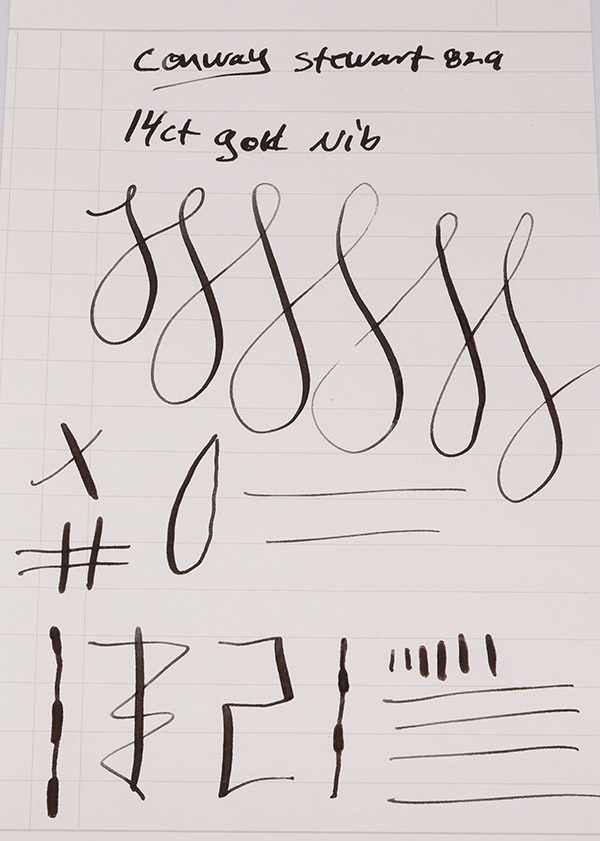 Conway Stewart 829
14ct gold Nib